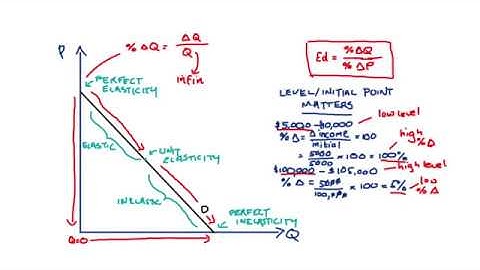 P
% ΔQ = ΔQ / Q
infin
PERFECT
ELASTICITY
ELASTIC
UNIT
ELASTICITY
INELASTIC
0
PERFECT
INELASTICITY
Q=0
Q
Ed = %ΔQ / %ΔP
LEVEL/INITIAL POINT
MATTERS
low level
$5,000 - $10,000
% Δ = Δ income / initial × 100
= 5000 / 5000 × 100 = 100%
high
% Δ
$100,000 - $105,000
high level
% Δ = 5000 / 100,000 × 100 = 5%
low
% Δ